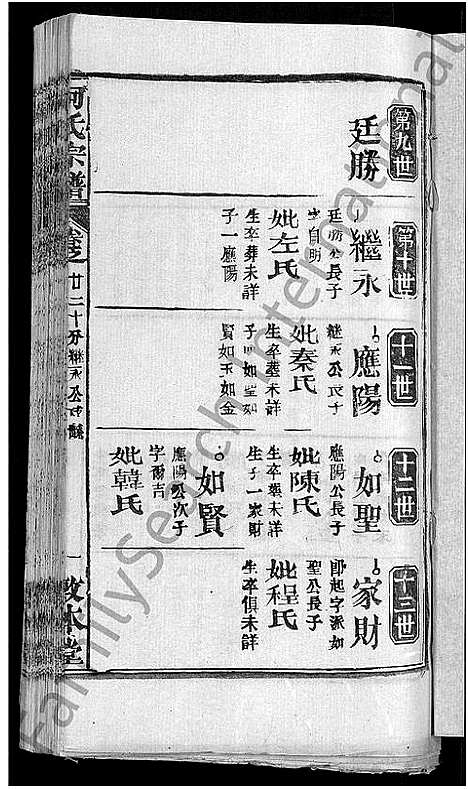 第九世
廷勝
第十世
繼永
廷勝公長子
字自明
妣左氏
生卒葬未詳
子一應陽
十一世
應陽
繼永公長子
妣秦氏
生卒葬未詳
子四如聖如
賢如玉如金
十二世
如聖
應陽公長子
妣陳氏
生卒葬未詳
生子一家財
如賢
應陽公次子
字爾吉
妣韓氏
十三世
家財
即起字派如
聖公長子
妣程氏
生卒俱未詳
何氏宗譜
卷之廿二
十分繼永公
一
敦本堂
FamilySearch International